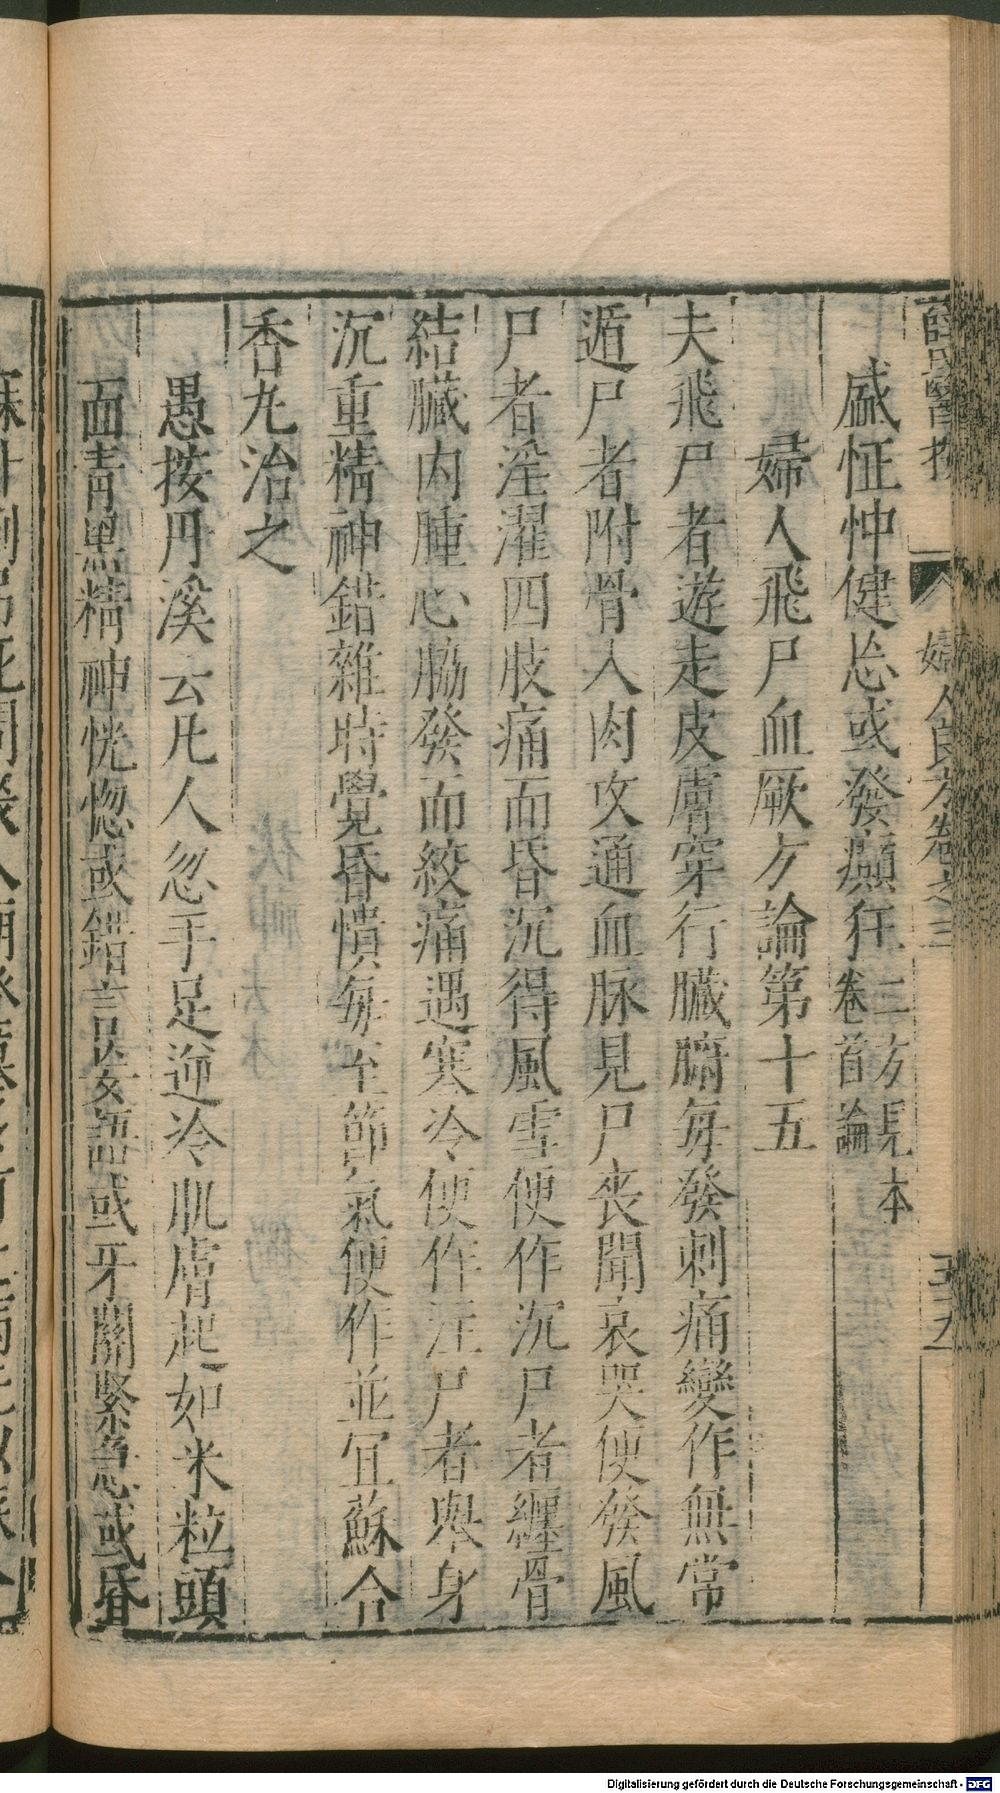 薛氏醫按 婦人良方卷之三 五十九
盛怔忡健忘或發癲狂二方見本卷首論
婦人飛尸血厥方論第十五
夫飛尸者遊走皮膚穿行臟腑每發刺痛變作無常
遁尸者附骨入肉攻通血脉見尸喪聞哀哭便發風
尸者淫濯四肢痛而昏沉得風雪便作沉尸者纏骨
結臟内腫心脇發而絞痛遇寒冷便作注尸者與身
沉重精神錯雜時覺昏憒每至節氣便作並宜蘇合
香丸治之
愚按丹溪云凡人忽手足逆冷肌膚起如米粒頭
面青黑精神恍惚或錯言妄語或牙關緊急或昏
Digitalisierung gefördert durch die Deutsche Forschungsgemeinschaft - DFG